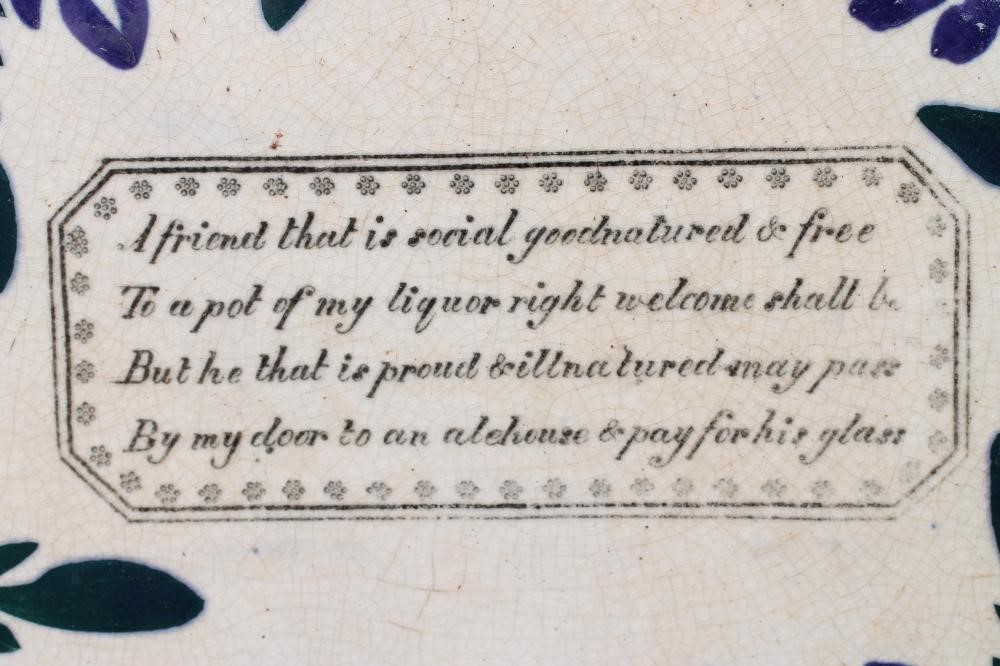 A friend that is social goodnatured & free
To a pot of my liquor right welcome shall be
But he that is proud & illnatured may pass
By my door to an alehouse & pay for his glass